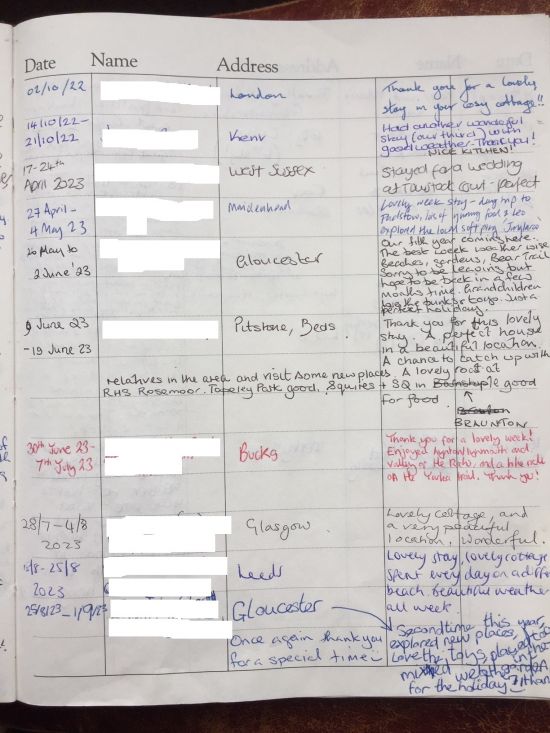 Date Name Address
02/10/22 London Thank you for a lovely
stay in your cosy cottage!!
14/10/22- Had another wonderful
21/10/22 Kent stay (our third) with
good weather. Thank you!
NICE KITCHEN!
17-24th West Sussex Stayed for a wedding
April 2023 at Tawstock Court - perfect
27 April- Maidenhead Lovely week stay - dog trip to
4 May 23 Padstow, lots of yummy food & Leo
explored the local soft play
26 May to Our fifth year coming here.
The best week weather wise
Gloucester Beaches, gardens, Bear Trail
2 June '23 Sorry to be leaving but
hope to be back in a few
months time. Grandchildren
love the bunks & toys. Just a
perfect holiday.
9 June 23 Pitstone, Beds Thank you for this lovely
stay. A perfect house
-19 June 23 in a beautiful location.
A chance to catch up with
relatives in the area and visit some new places. A lovely roast at
RHS Rosemoor. Tapeley Park good. Squires + SQ in Barnstaple good
for food
BRAUNTON
30th June 23- Bucks Thank you for a lovely week!
7th July 23 Enjoyed Lynton/Lynmouth and
Valley of the Rocks and a bike ride
on the Tarka trail. Thank you!
28/7-4/8 Glasgow Lovely cottage, and
2023 a very peaceful
location, wonderful.
/8-25/8 Leeds Lovely stay, lovely cottage
2023 spent every day on a diff
beach. beautiful weather
all week.
25/8/23-1/9/23 Gloucester
Once again thankyou
for a special time
Second time this year,
explored new places,
Love the toys, played
in the garden
mixed weather
for the holiday